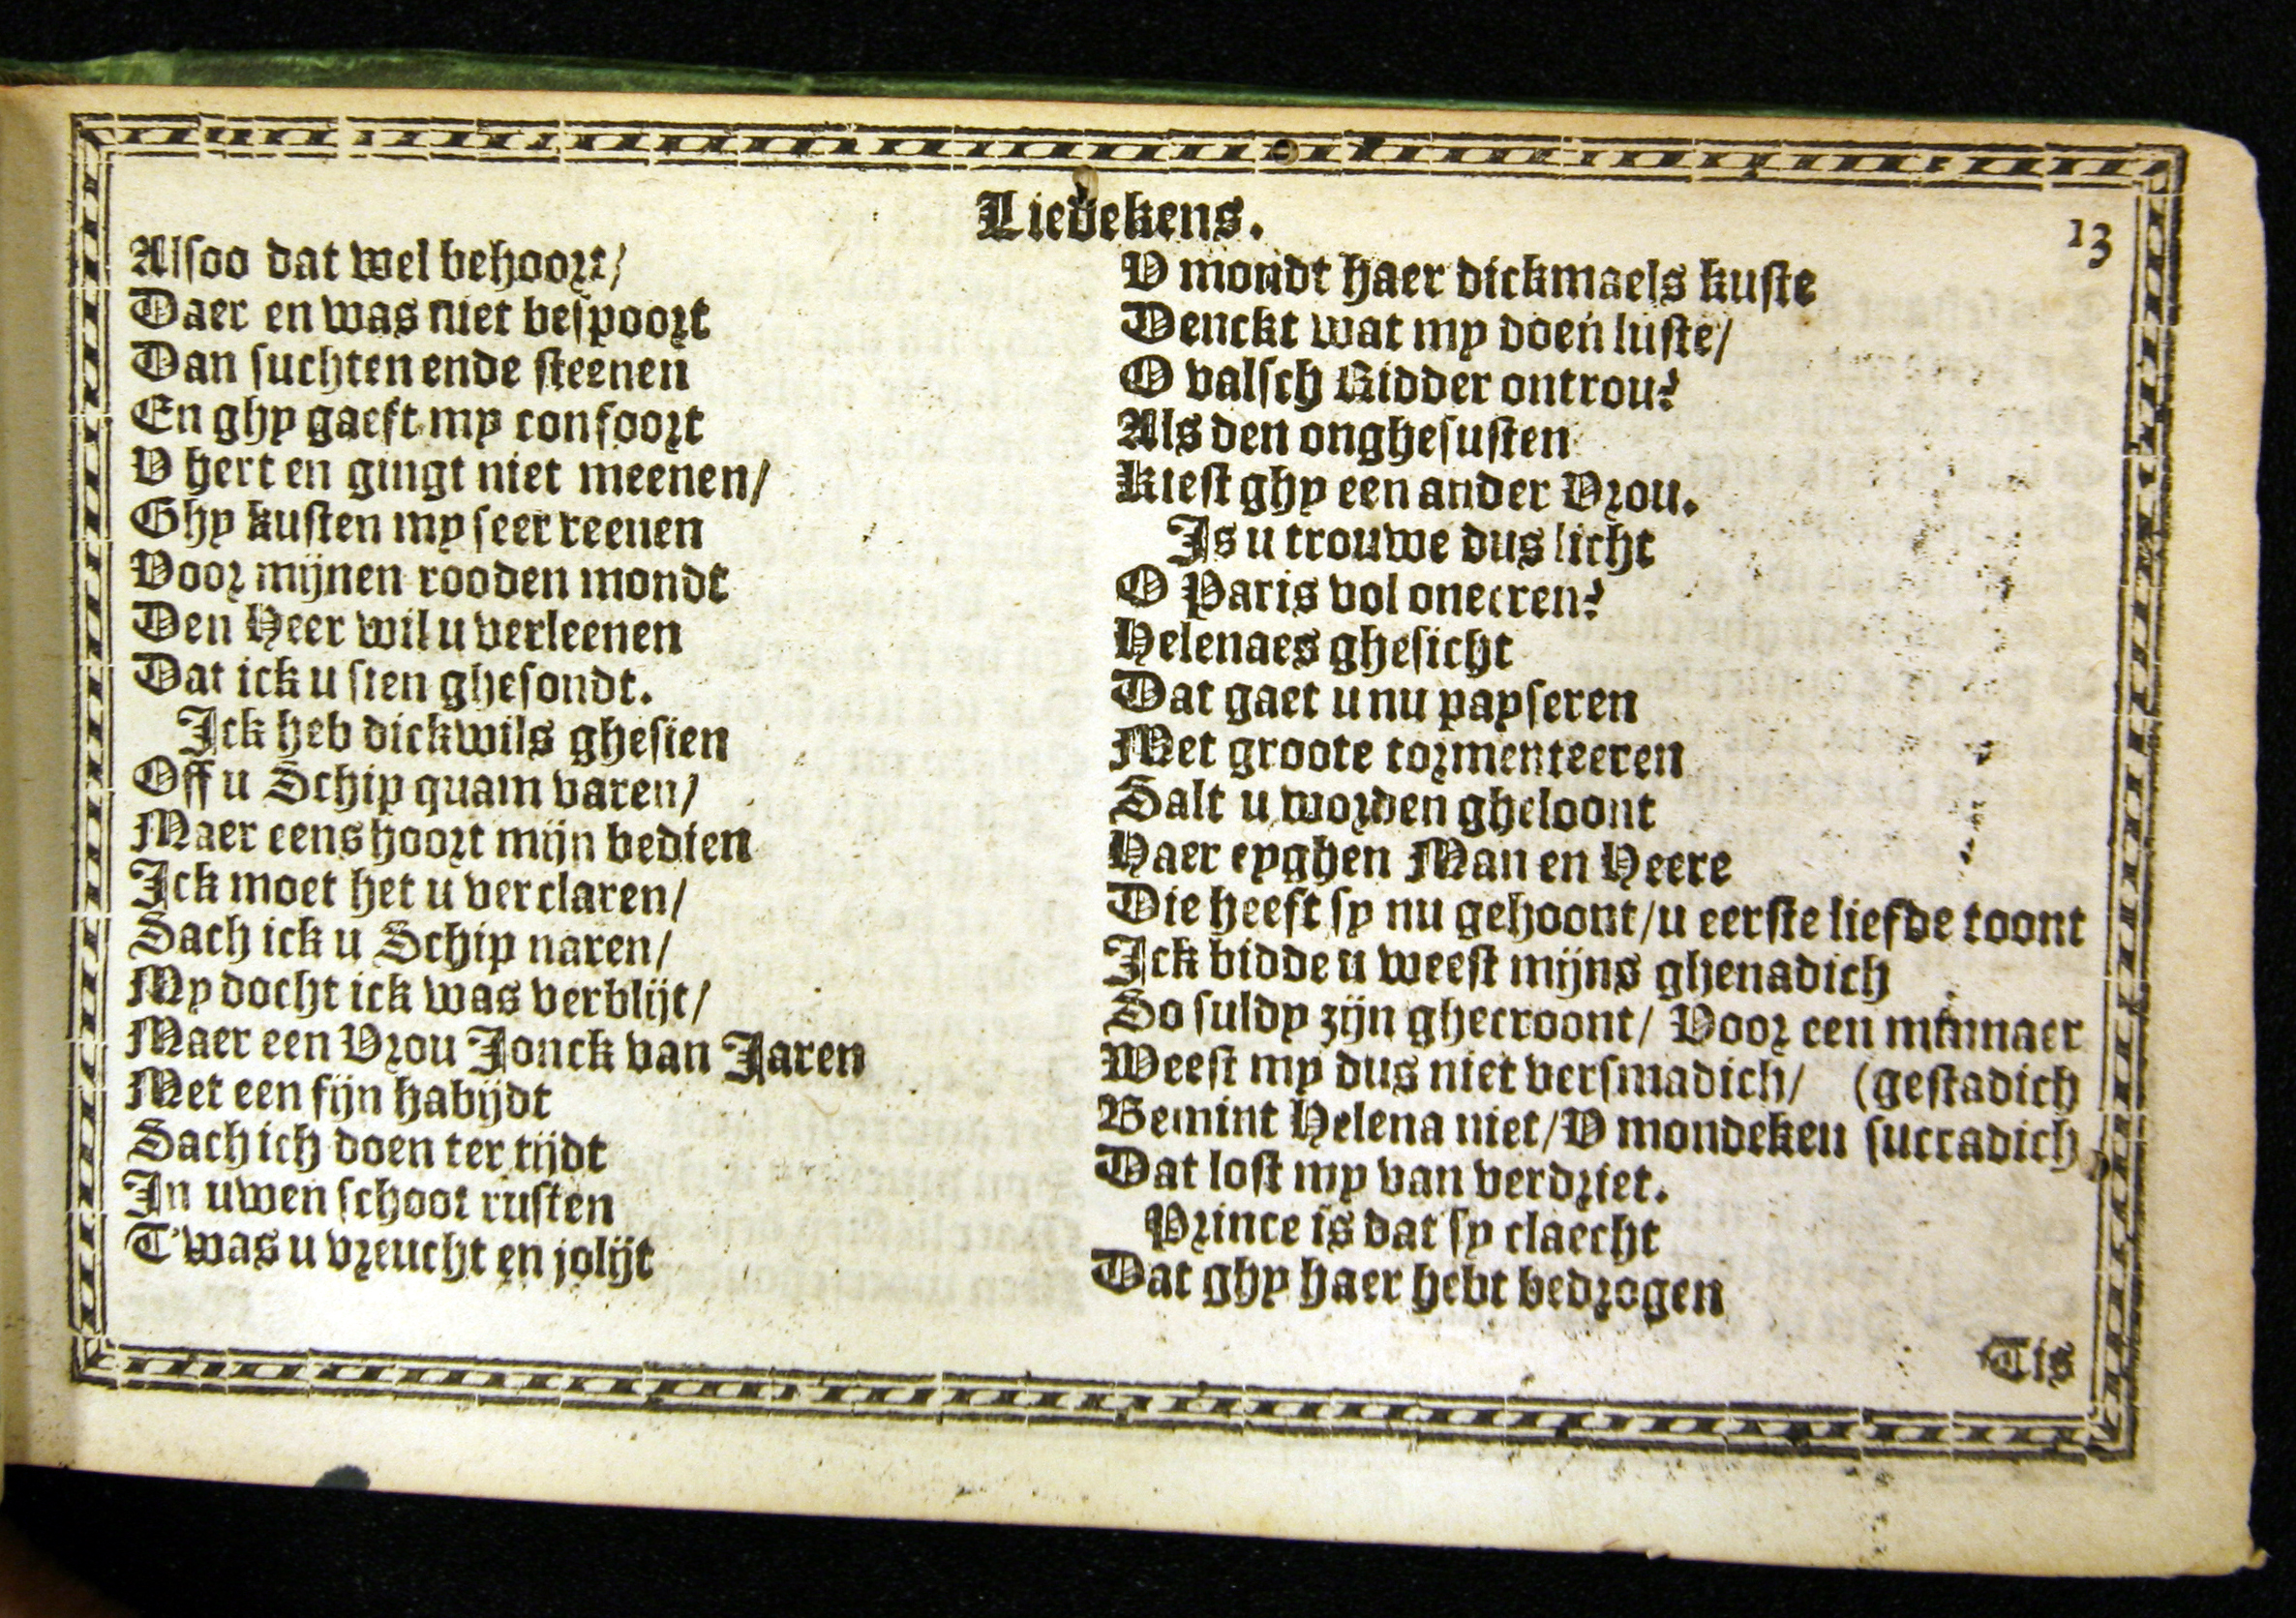 Liedekens.
13
Alsoo dat wel behoort/
Daer en was niet bespoort
Dan suchten ende steenen
En ghy gaeft my confoort
V hert en gingt niet meenen/
Ghy kusten my seer reenen
Voor mijnen rooden mondt
Den Heer wil u verleenen
Dat ick u sien ghesondt.
Ick heb dickwils ghesien
Off u Schip quam varen/
Maer eens hoort mijn bedien
Ick moet het u verclaren/
Sach ick u Schip naren/
My docht ick was verblijt/
Maer een Vrou Jonck van Jaren
Met een fijn habijdt
Sach ich doen ter tijdt
In uwen schoot rusten
T'was u vreucht en jolijt
V mondt haer dickmaels kuste
Denckt wat my doen luste/
O valsch Ridder ontrou?
Als den onghesusten
Kiest ghy een ander Vrou.
Is u trouwe dus licht
O Paris vol oneeren?
Helenaes ghesicht
Dat gaet u nu payseren
Met groote tormenteeren
Salt u worden gheloont
Haer eyghen Man en Heere
Die heeft sy nu gehoont/u eerste liefde toont
Ick bidde u weest mijns ghenadich
So suldy zijn ghecroont/ Voor een minnaer
Weest my dus niet versmadich/ (gestadich
Bemint Helena niet/V mondeken succadich
Dat lost my van verdriet.
Prince is dat sy claecht
Dat ghy haer hebt bedrogen
Tis